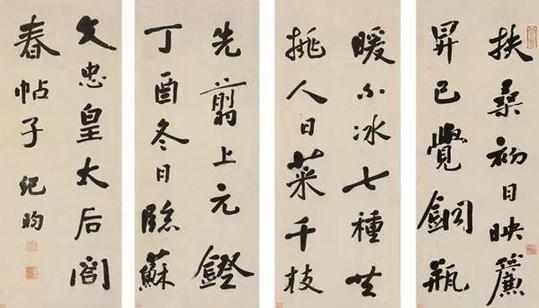 扶桑初日映簾
昇已覺銅瓶
暖不冰七種共
挑人日菜千枝
先剪上元鐙
丁酉冬日臨蘇
文忠皇太后閣
春帖子 紀昀